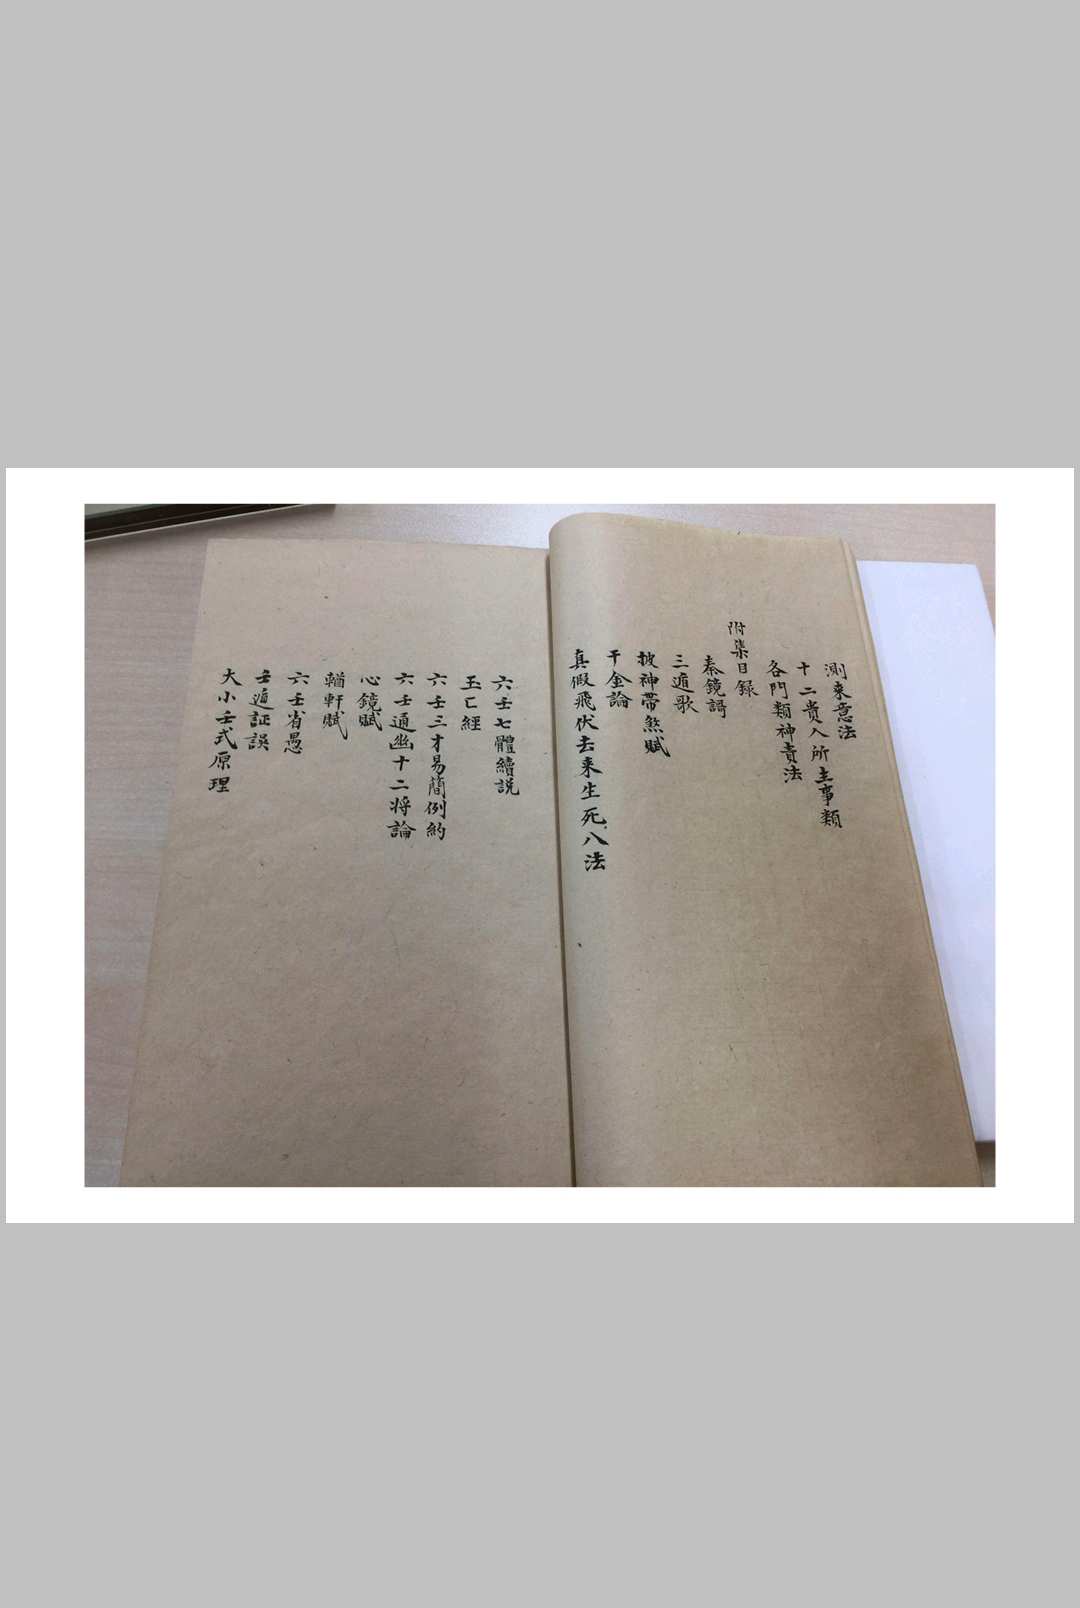 測來意法
十二贵人所主事類
各門類神责法
附集目録
秦鏡謌
三遁歌
披神帶煞賦
千金論
真假飛伏去来生死八法
六壬七體續説
玉匕經
六壬三才易簡例約
六壬通幽十二将論
心鏡賦
輶軒賦
六壬省愚
壬遁証誤
大小壬式原理